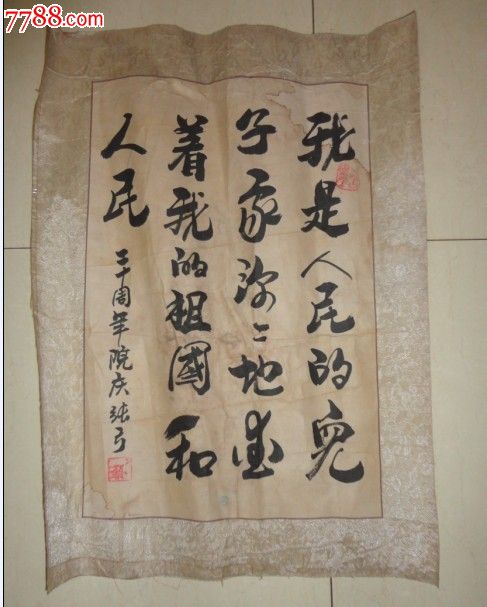 7788.com
我是人民的兒
子我深：地愛
着我的祖國和
人民
三十周年院庆张弓